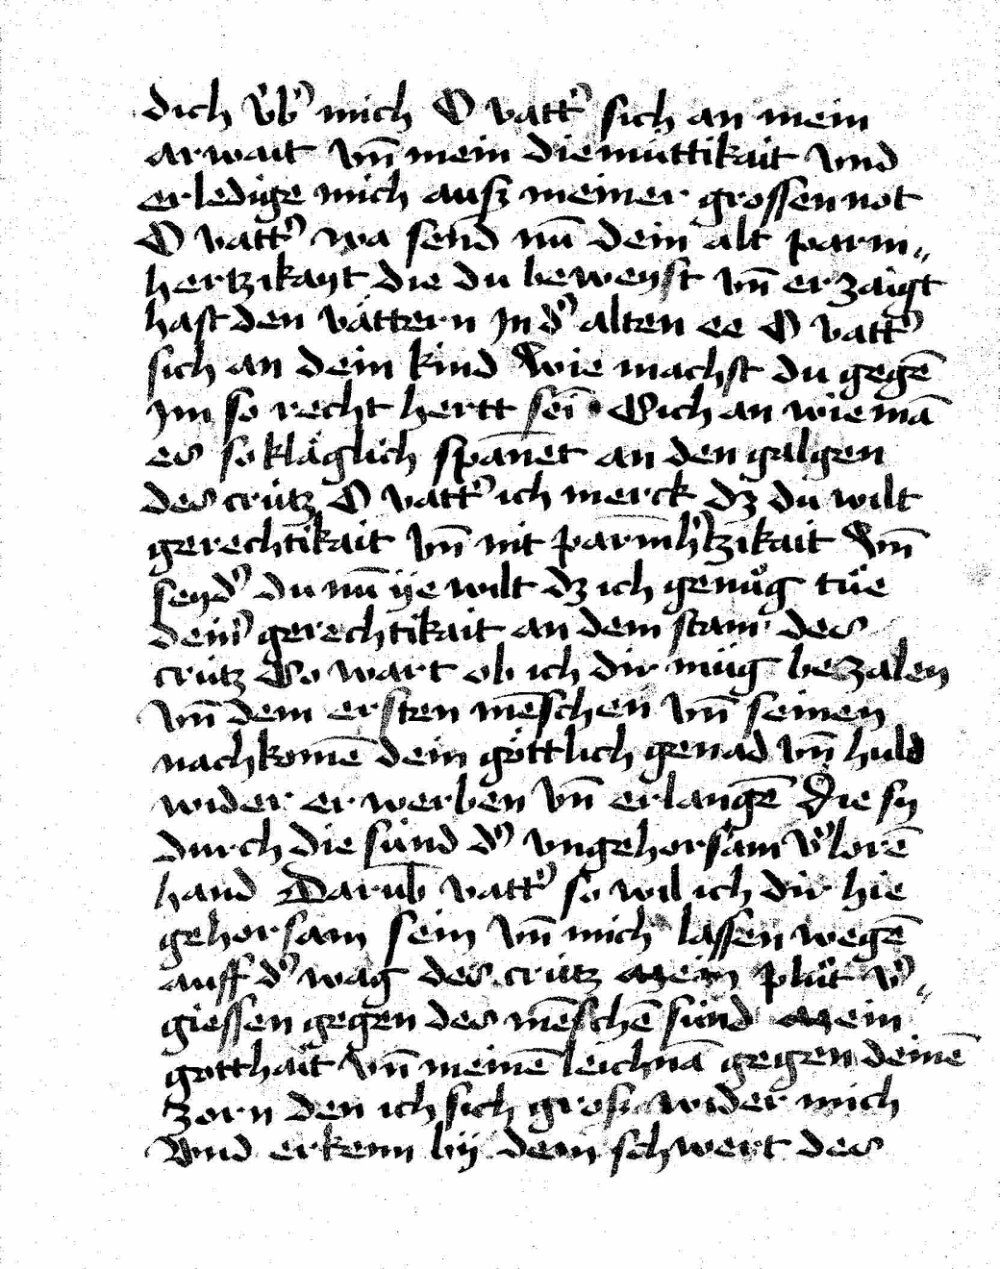 dich v̓b̓ mich O vatt̓ sich an mein
arwait vn̄ mein diemüttikait vnd
erledige mich ausz meiner grossen not
O vatt̓ wa send nū dein alt parm„
hertzikayt die du beweyst vn̄ erzaigt
hast den vättern In d̓ alten ee O vatt̓
sich an dein kind Wie machst du gegē
Im so recht hertt sei Sich an wie mā
es so kläglich spānet an den galgen
des crütz O vatt̓ ich merck dz du wilt
gerechtikait vn̄ nit parmh̓tzikait Vn̄
seyd̓ du nū ÿe wilt dz ich genůg tůe
dein̓ gerechtikait an dem stam des
crütz So wart ob ich dir müg bezalen
vn̄ dem ersten mēschen vn̄ seinen
nachkomē dein göttlich genad vn̄ huld
wider erwerben vn̄ erlangē Die sy
durch die sünd d̓ vngehorsam v̓lorē
hand Darub̄ vatt̓ so wil ich dir hie
gehorsam sein vn̄ mich lassen wegē
auff d̓ wag des crütz Mein plůt v̓„
giessen gegen des mēschē sünd Mein
gotthait vn̄ meinē leichnā gegen deinē
zorn den ich sich gros wider mich
Vnd erkenn bÿ dem schwert des